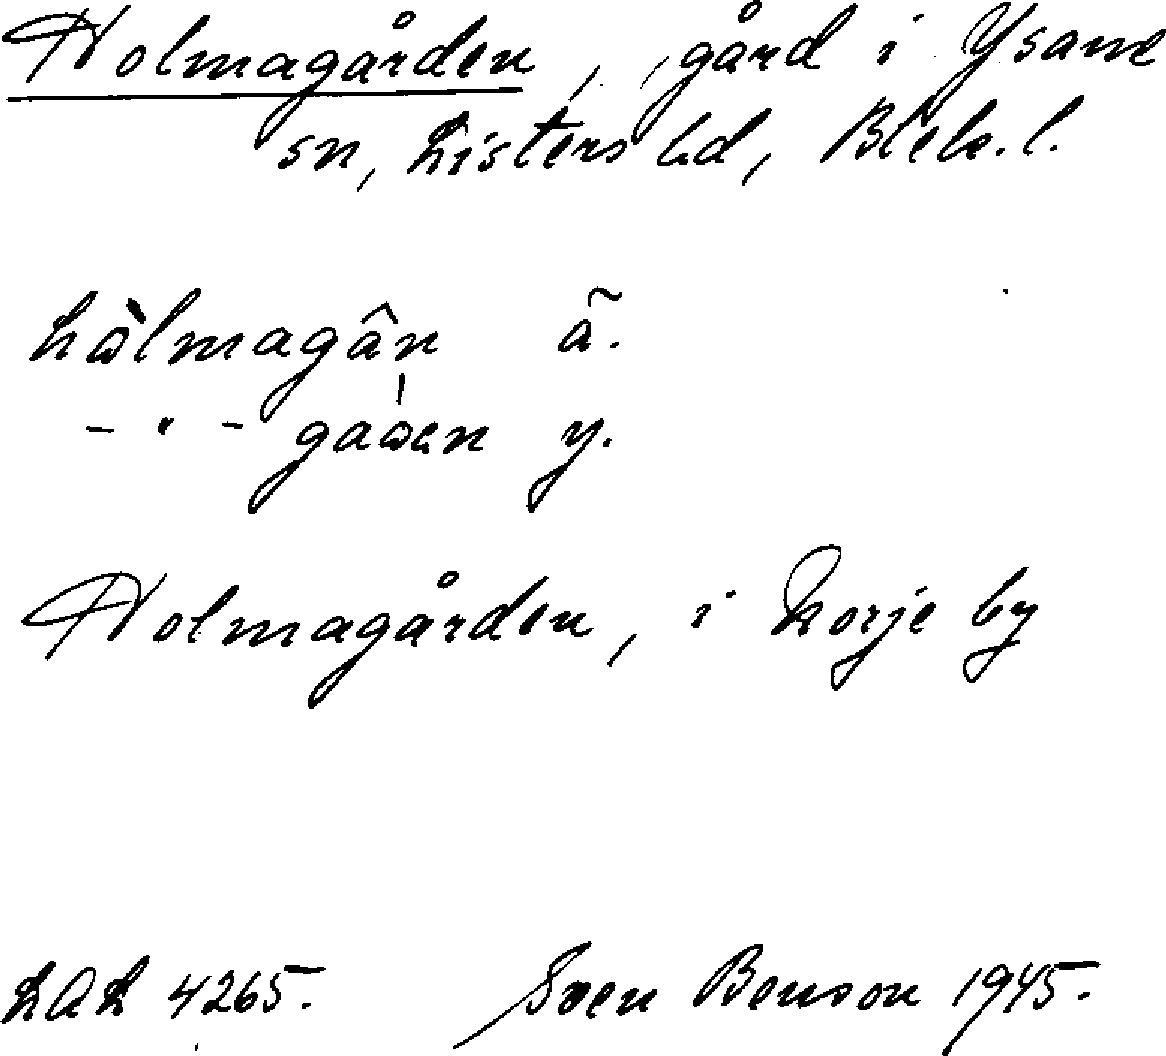 Holmagården, gård i Ysane
sn, Listers hd, Blek. l.
hòlmagân ä.
– " – gaòen y.
Holmagården, i Korje by
LAL 4265. Sven Benson 1945.